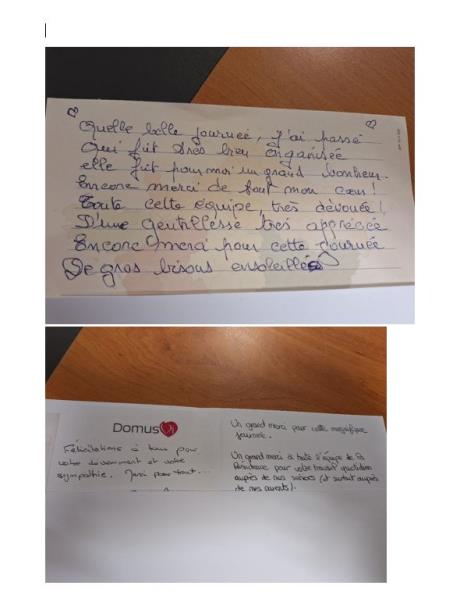 Quelle belle journée, j'ai passé
Qui fût très bien organisée
elle fût pour moi un grand bonheur.
Encore merci de tout mon cœur !
Toute cette équipe, très dévouée !
D'une gentillesse très appréciée
Encore merci pour cette journée
De gros bisous ensoleillés
DomusVi
Félicitations à tous pour
votre dévouement et votre
sympathie. Merci pour tout...
Un grand merci pour cette magnifique
journée.
Un grand merci à toute l'équipe de la
Résidence pour votre travail quotidien
auprès de nos séniors (et surtout auprès
de mes parents).